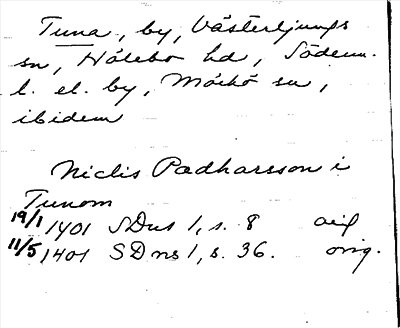 Tuna, by, Västerljungs
sn, Hölebo hd, Söderm.
l. el. by, Mörkö sn,
ibidem
Niclis Padharsson i
Tunom
19/1 1401 SDns 1, s. 8 orig
11/5 1401 SDns 1, s. 36. orig.